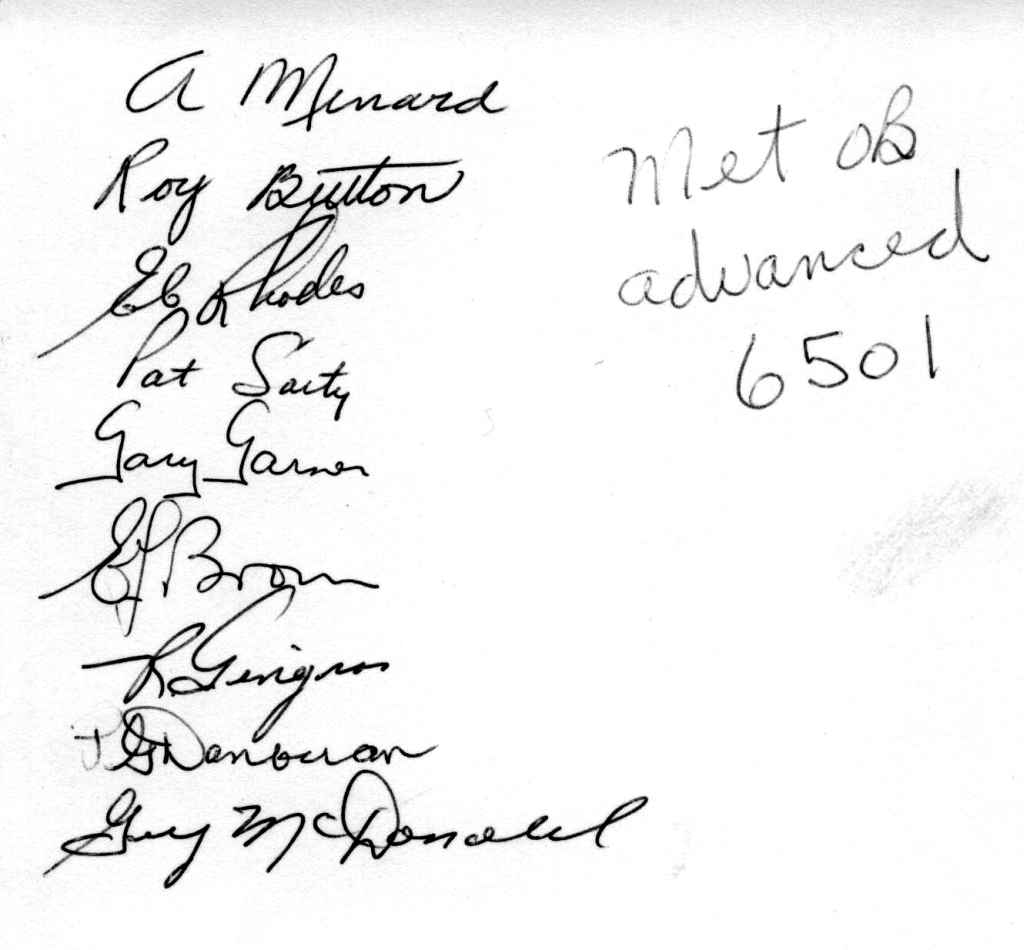 A Menard
Roy Button
Eb Rhodes
Pat Saity
Gary Garner
EJ Brown
R Gingras
J G Danouran
Guy McDonald
Met OB
advanced
6501